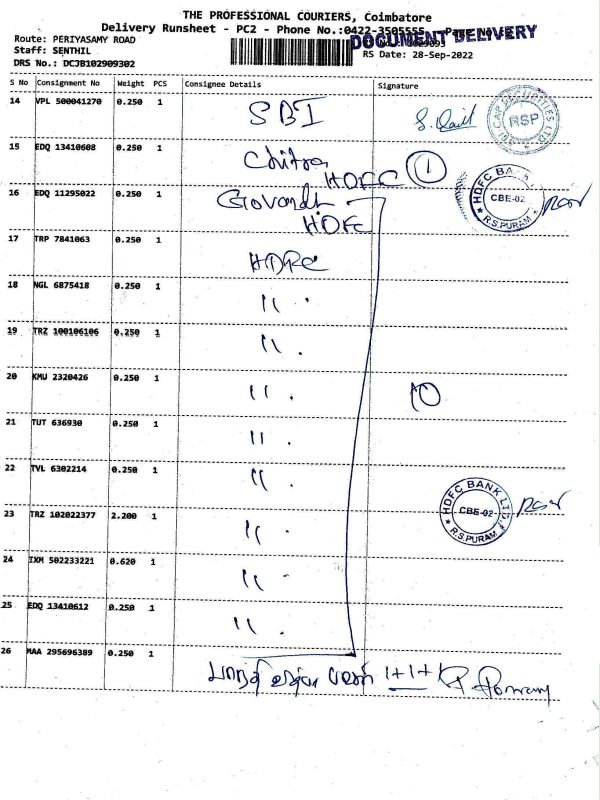 THE PROFESSIONAL COURIERS, Coimbatore
Delivery Runsheet - PC2 - Phone No.:0422-3505555
DOCUMENT DELIVERY
Route: PERIYASAMY ROAD
Staff: SENTHIL
RS Date: 28-Sep-2022
DRS No.: DCJB102909302
S No Consignment No Weight PCS Consignee Details Signature
14 VPL 500041270 0.250 1 SBI
RSP
15 EDQ 13410608 0.250 1 Chitra HDFC 1
16 EDQ 11295022 0.250 1 HDFC
HDFC BANK
CBE-02
R.S.PURAM
17 TRP 7841063 0.250 1 HDFC
18 NGL 6875418 0.250 1 〃
19 TRZ 100106106 0.250 1 〃
20 KMU 2320426 0.250 1 〃 10
21 TUT 636930 0.250 1 〃
22 TVL 6302214 0.250 1 〃
23 TRZ 102022377 2.200 1 〃
HDFC BANK LTD
CBE-02
R.S.PURAM
24 IXM 502233221 0.620 1 〃
25 EDQ 13410612 0.250 1 〃
26 MAA 295696389 0.250 1 1+1+1